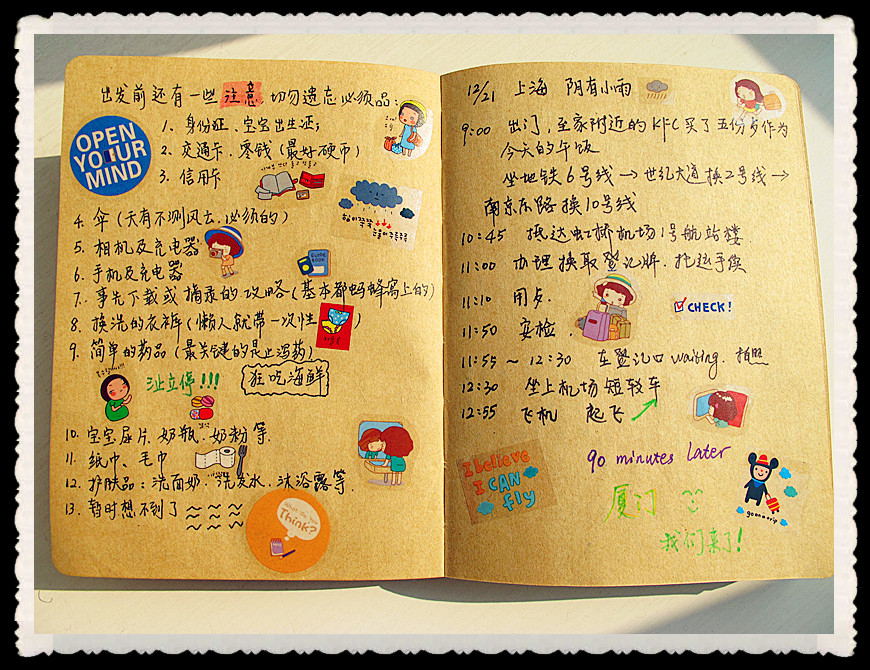 出发前还有一些注意,切勿遗忘必须品:
OPEN
YOUR
MIND
1、身份证、宝宝出生证;
2、交通卡、零钱(最好硬币)
3、信用卡
4、伞(天有不测风云,必须的)
5、相机及充电器
GUIDE
BOOK
6、手机及充电器
7、事先下载或摘录的攻略(基本都蚂蜂窝上的)
8、换洗的衣裤(懒人就带一次性)
9、简单的药品(最关键的是止泻药)
泻立停!!!
狂吃海鲜
10、宝宝尿片、奶瓶、奶粉等.
11、纸巾、毛巾
12、护肤品:洗面奶、洗发水、沐浴露等.
13、暂时想不到了
Think?
12/21 上海 阴有小雨
9:00 出门,至家附近的KFC买了五份乡作为
今天的午饭
坐地铁6号线→世纪大道换2号线→
南京东路换10号线
10:45 抵达虹桥机场1号航站楼.
11:00 办理换取登记牌、托运手续
11:10 用乡.
CHECK!
11:50 安检.
11:55 ~ 12:30 在登记口waiting、拍照
12:30 坐上机场短驳车
12:55 飞机 起飞
90 minutes Later
I believe
I CAN
fly
厦门
go on a trip
我们来了!